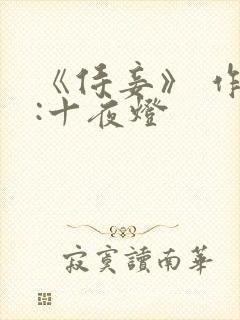 《侍妾》 作
:十夜燈
寂寞讀南華